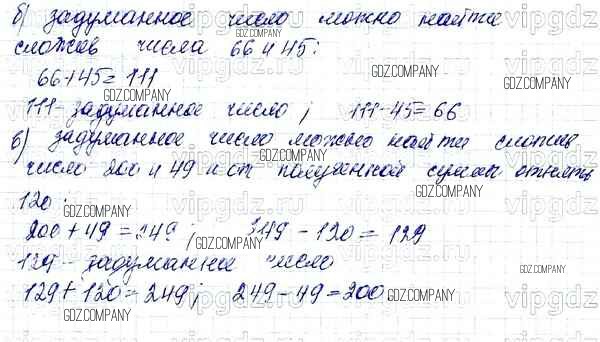 б) задуманное число можно найти
сложив числа 66 и 45:
66+45=111
111- задуманное число; 111-45=66
в) задуманное число можно найти сложив
число 200 и 49 и от полученной суммы отнять
120:
200+49=249; 249-120=129
129- задуманное число
129+120=249; 249-49=200